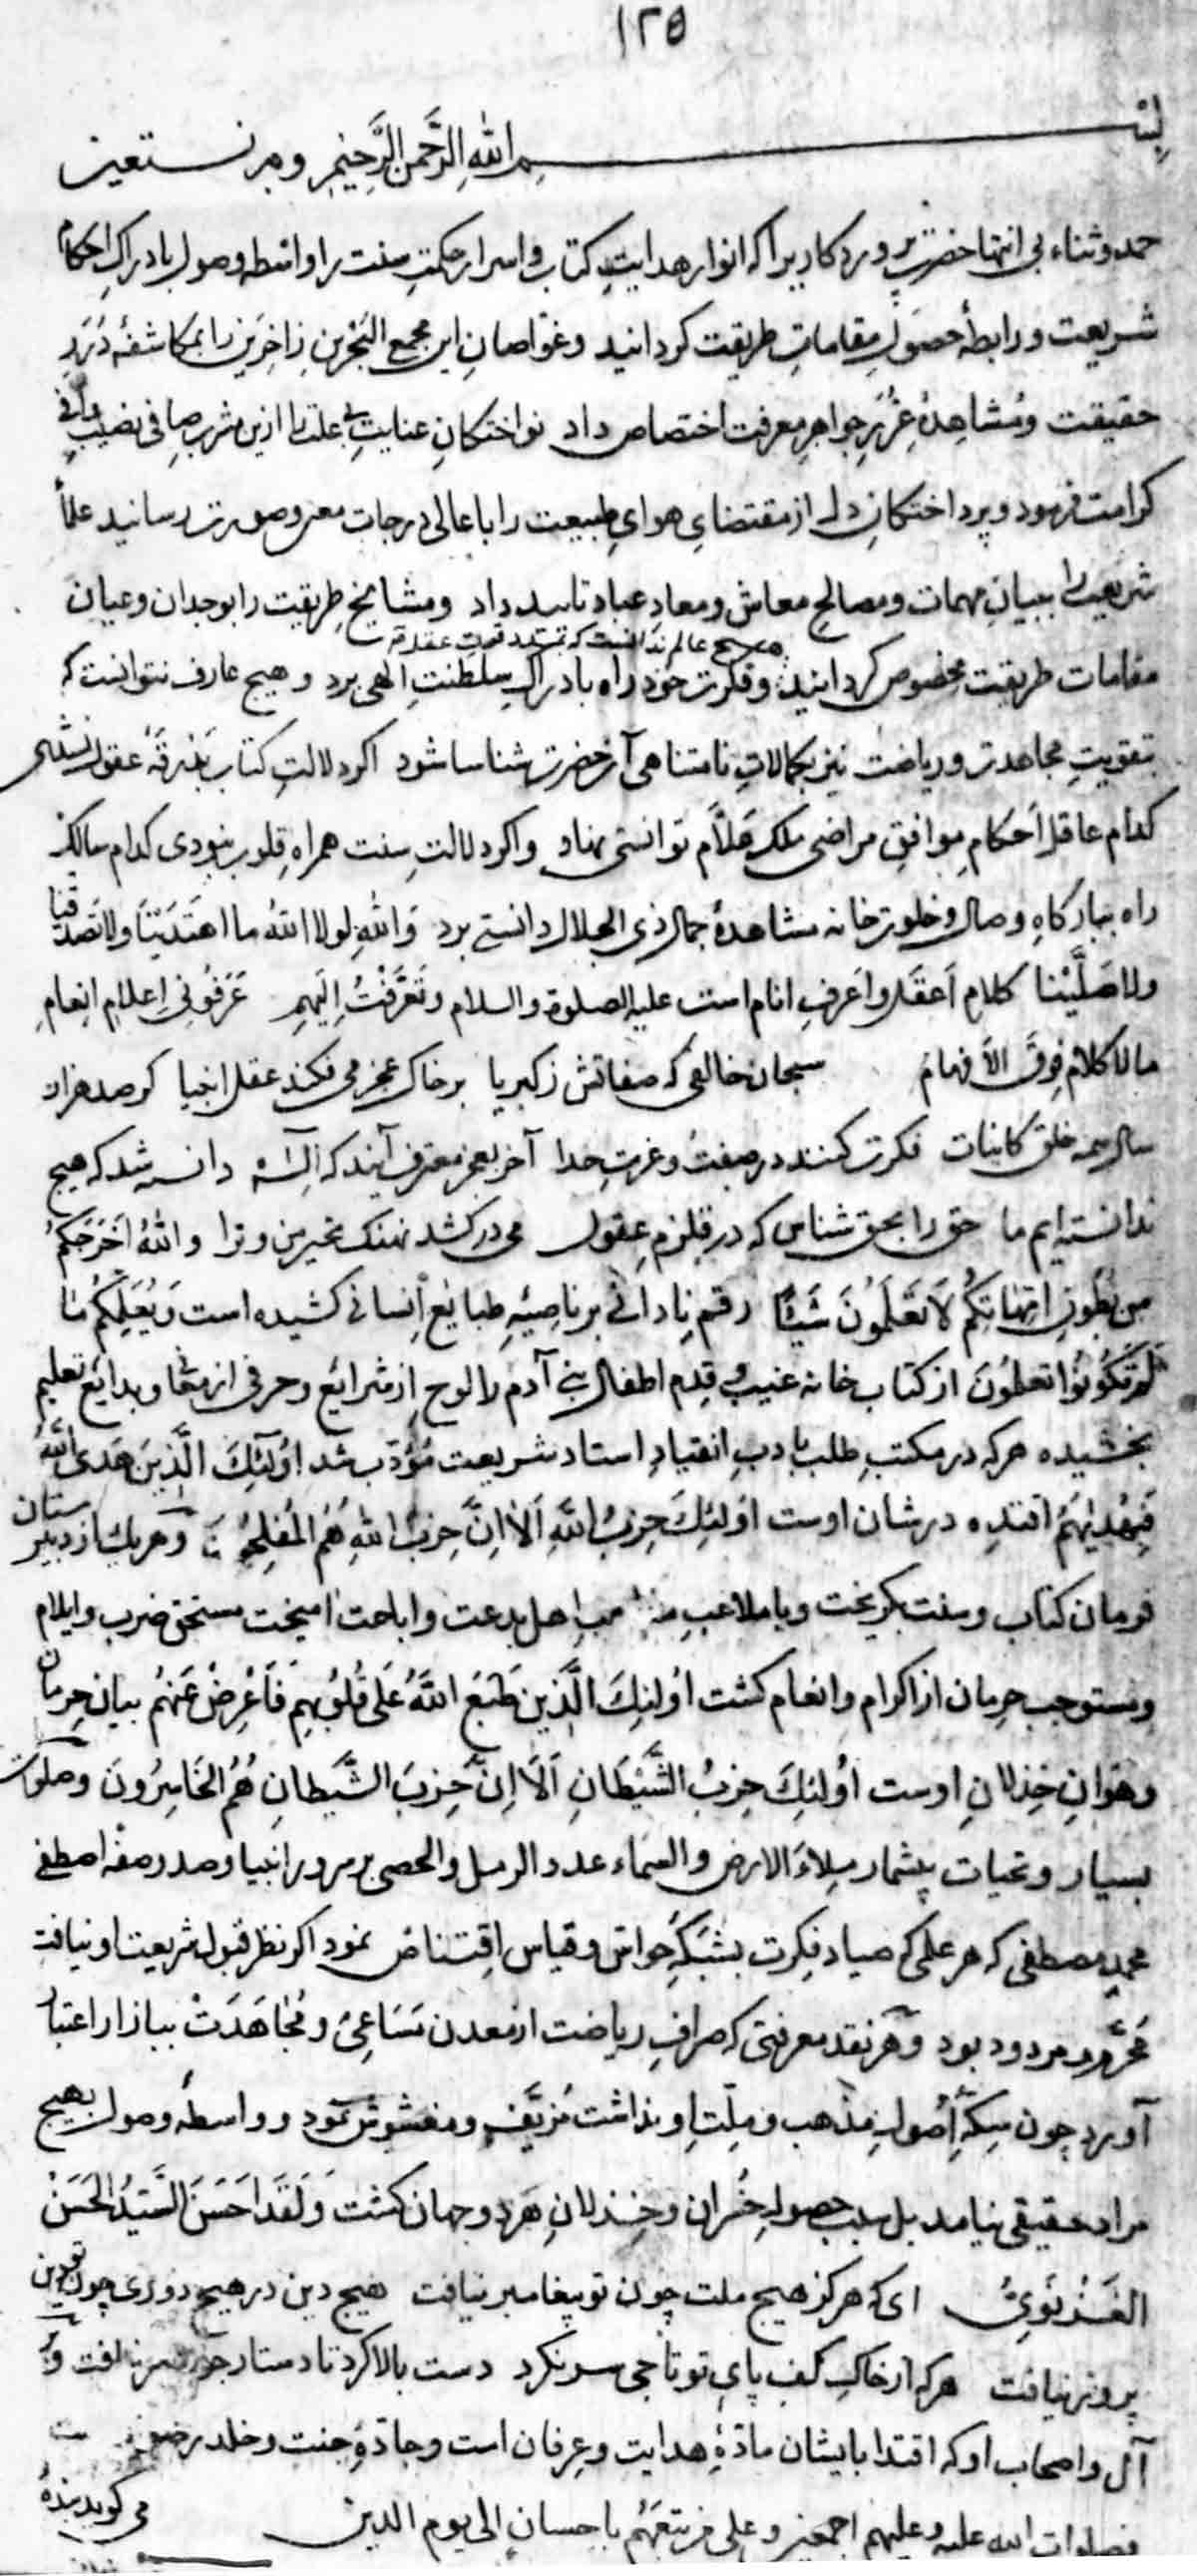 ۱۲۵
بسم الله الرحمن الرحیم و به نستعین
حمد و ثناء بی انتها حضرت پروردکاریرا که انوار هدایتِ کتاب و اسرار حکمتِ سنت را واسطه وصول بادراکِ احکام
شریعت و رابطهٔ حصولِ مقاماتِ طریقت کردانید و غوّاصانِ این مجمع البَحْرین زاخِرَین را بمکاشفهٔ دُرَرِ
حقیقت و مُشاهِدهٔ غُرَرِ جواهرِ معرفت اختصاص داد نواختکانِ عنایتِ بی علت را ازین مشربِ صافی نصیبِ وافی
کرامت فرمود و پرداختکانِ دل از مقتضایِ هوایِ طبیعت را باعالی درجات معنی و صورت رسانید علماءِ
شریعت را ببیانِ مهمات و مصالحِ معاش و معادِ عباد تایید داد و مشایخِ طریقت را بوجدان و عیان
هیچ عالم ندانست که بمدد قوت عقل
مقامات طریقت مخصوص کردانید و فکرت خود راه بادراکِ سلطنتِ الهی برد و هیچ عارف نتوانست که
بتقویتِ مجاهدت و ریاضت نیز بکمالاتِ نامتناهی آن حضرت شناسا شود اکر دلالتِ کتاب بَدْرقَهٔ عقول نشدی
کدام عاقل اَحکامِ موافقِ مراضی ملک علّام توانستی نهاد و اکر دلالتِ سنت همراهِ قلوب نبودی کدام سالک
راه ببارکاهِ وصال و خلوت خانه مشاهدهٔ جمال ذی الجلال دانستی برد وَاللهِ لولا اللهُ ما اهتَدَیْنَا ولا تَصدَّقنا
ولا صَلَّیْنا کلامِ اَعقَل و اَعرفِ انام است علیه الصلوة والسلام وتَعَرَّفْتُ اِلَیهِم عَرَفونی اعلامِ انعامِ
ما لا کلام فوقَ الاَفهام سبحان خالقی که صفاتش ز کبریا بر خاک عجز می فکند عقل انبیا کر صد هزار
سال همه خلق کاینات فکرت کنند در صفت و عزتِ خدا آخر بعجز معترف آیند کای اله دانسته شد که هیچ
ندانسته ایم ما حق را بحق شناس که در قلزمِ عقول می درکشد نهنک تحیر من و ترا واللهُ اَخْرَجَکُم
من بُطُونِ اُمَّهاتِکُم لَا تَعْلَمُونَ شَیْئًا رقم نادانی بر ناصیهِ طبایع انسانی کشیده است وَیُعَلِّمُکُم مَا
لَم تَکُونُوا تَعلَمُونَ از کتاب خانه غیب و قِدم اطفال بنی آدم را لوحی از شرایع و حرفی از معانی و بدایع تعلیم
بخشیده هرکه در مکتبِ طلب بادبِ انقیادِ استاد شریعت مؤدَّب شد اُولٰئِکَ الَّذِینَ هَدَی اللهُ
فَبِهُدٰیهُمُ اقتَدِه در شان اوست اُولٰئِکَ حِزبُ اللهِ اَلَا اِنَّ حِزبَ اللهِ هُمُ المُفلِحُونَ و هریک از دبیرستان
فرمان کتاب و سنت بکریخت و با ملاعبِ اهل بدعت و اباحت آمیخت مستحق ضرب و ایلام
و مستوجب حرمان از اکرام و انعام کشت اُولٰئِکَ الَّذِینَ طَبَعَ اللهُ عَلَی قُلُوبِهِم فَاَعْرِضْ عَنهُم بیان حِرمان
و هوانِ خِذلانِ اوست اُولٰئِکَ حِزبُ الشَّیْطَانِ اَلَا اِنَّ حِزبَ الشَّیطانِ هُمُ الخَاسِرُونَ و صلوات
بسیار و تحیات بیشمار مِلاءَ الارضِ والسَّماء عدد الرمل والحصی بر سرور انبیا و صدر صفهٔ اصطفی
محمدِ مصطفی که هر علمی که صیاد فکرت بشَبَکَهِ حواسّ و قیاس اِقتناص نمود اکر نظر قبول شریعت او نیافت
و مردود بود و هر نقد معرفتی که صرافِ ریاضت از معدن مَسَاعِی و مُجَاهَدَت ببازار اعتبار
آورد چون سِکّهِ اُصُولِ مذهب و مِلّتِ او نداشت مُزیَّف و مغشوش نمود و واسطهٔ وصول بهیچ
مراد حقیقی نیامد بل سبب حصولِ خُسران و خِذلانِ هر دو جهان کشت وَلَقَد اَحسَنَ السَّیِّدُ الحَسَنُ
الغَزنَوِیُّ ای که هرکز هیچ ملت چون تو پیغامبر نیافت هیچ دین در هیچ دوری چون تو دین
پرور نیافت هرکه از خاکِ کفِ پایِ تو تاجی سر نکرد دست بالا کرد تا دستار سر نیافت و بر
آل و اصحاب او که اقتدا بایشان مادّهٔ هدایت و عِرفان است و جادّهٔ جنت و خلد
فصلوات الله علیه و علیهم اجمعین و علی من تبعَهُم باحسانٍ الی یوم الدین می کوید بندهٔ